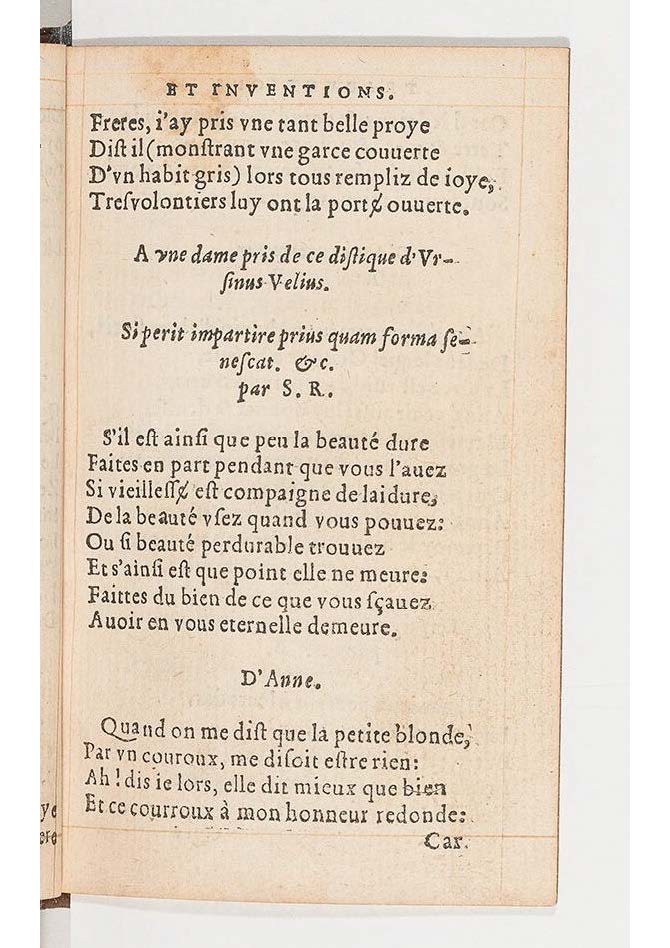 ET INVENTIONS.
Freres, i'ay pris vne tant belle proye
Dist il (monstrant vne garce couuerte
D'vn habit gris) lors tous rempliz de ioye,
Tresvolontiers luy ont la portɇ ouuerte.
A vne dame pris de ce distique d'Vr-
sinus Velius.
Si perit impartire prius quam forma se-
nescat. &c.
par S. R.
S'il est ainsi que peu la beauté dure
Faites en part pendant que vous l'auez
Si vieillessɇ est compaigne de laidure,
De la beauté vsez quand vous pouuez:
Ou si beauté perdurable trouuez
Et s'ainsi est que point elle ne meure:
Faittes du bien de ce que vous sçauez
Auoir en vous eternelle demeure.
D'Anne.
Quand on me dist que la petite blonde,
Par vn couroux, me disoit estre rien:
Ah ! dis ie lors, elle dit mieux que bien
Et ce courroux à mon honneur redonde:
Car